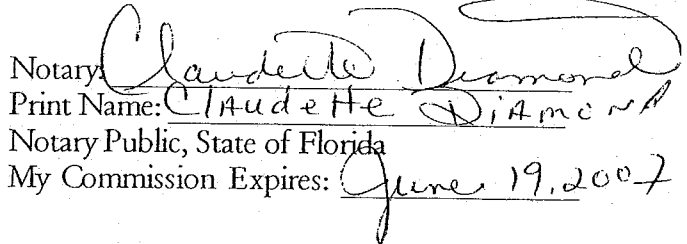 Notary: Claudette Diamond
Print Name: Claudette Diamond
Notary Public, State of Florida
My Commission Expires: June 19, 2007